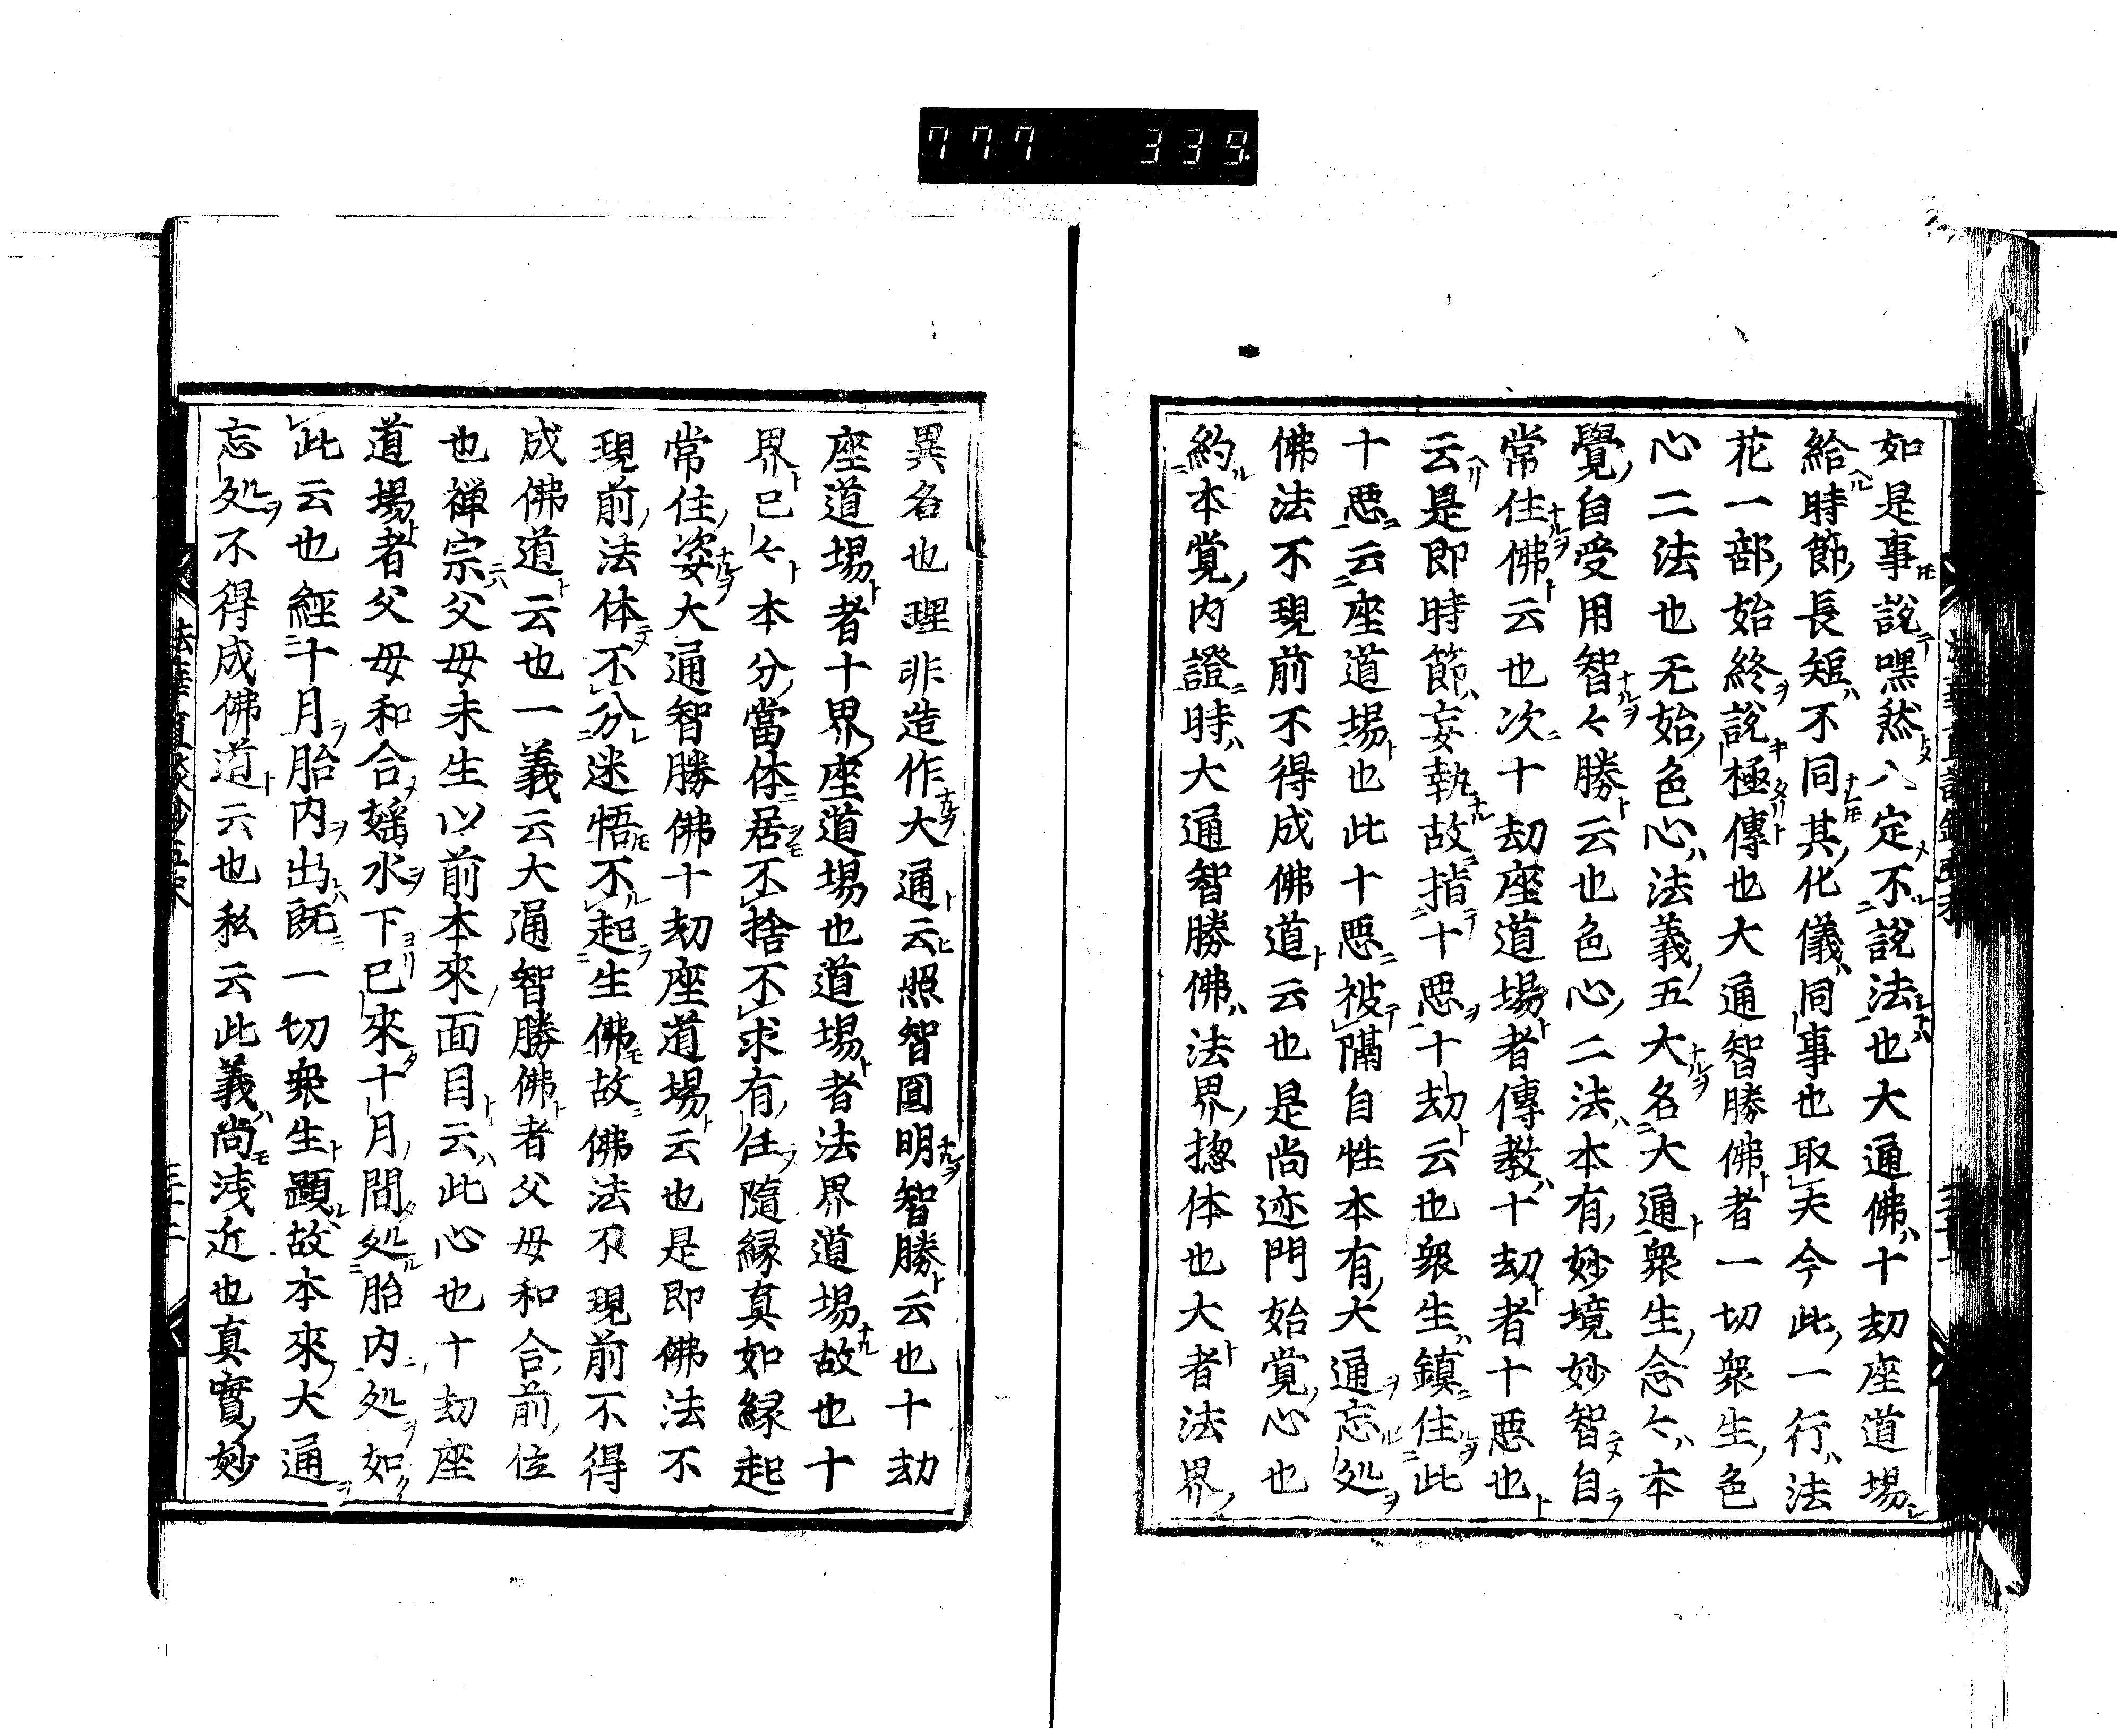 777 339.
如是事説嘿然入定不説法也大通佛十劫座道場
給時節長短不同其化儀同事也取夫今此一行法
花一部始終説極傳也大通智勝佛者一切衆生色
心二法也无始色心法義五大名大通衆生念々本
覺自受用智々勝云也色心二法本有妙境妙智自
常住佛云也次十劫座道場者傳教十劫者十悪也
云是即時節妄執故指十悪十劫云也衆生鎮住此
十悪云座道場也此十悪被隔自性本有大通忘処
佛法不現前不得成佛道云也是尚迹門始覚心也
約本覚内證時大通智勝佛法界揔体也大者法界
異名也理非造作大通云照智圓明智勝云也十劫
座道場者十界座道場也道場者法界道場故也十
界已々本分當体居不捨不求有任隨縁真如縁起
常住姿大通智勝佛十劫座道場云也是即佛法不
現前法体不分迷悟不起生佛故佛法不現前不得
成佛道云也一義云大通智勝佛者父母和合前位
也禅宗父母未生以前本來面目云此心也十劫座
道場者父母和合婬水下已來十月間処胎内処如
此云也經十月胎内出既一切衆生顕故本來大通
忘処不得成佛道云也私云此義尚浅近也真實妙